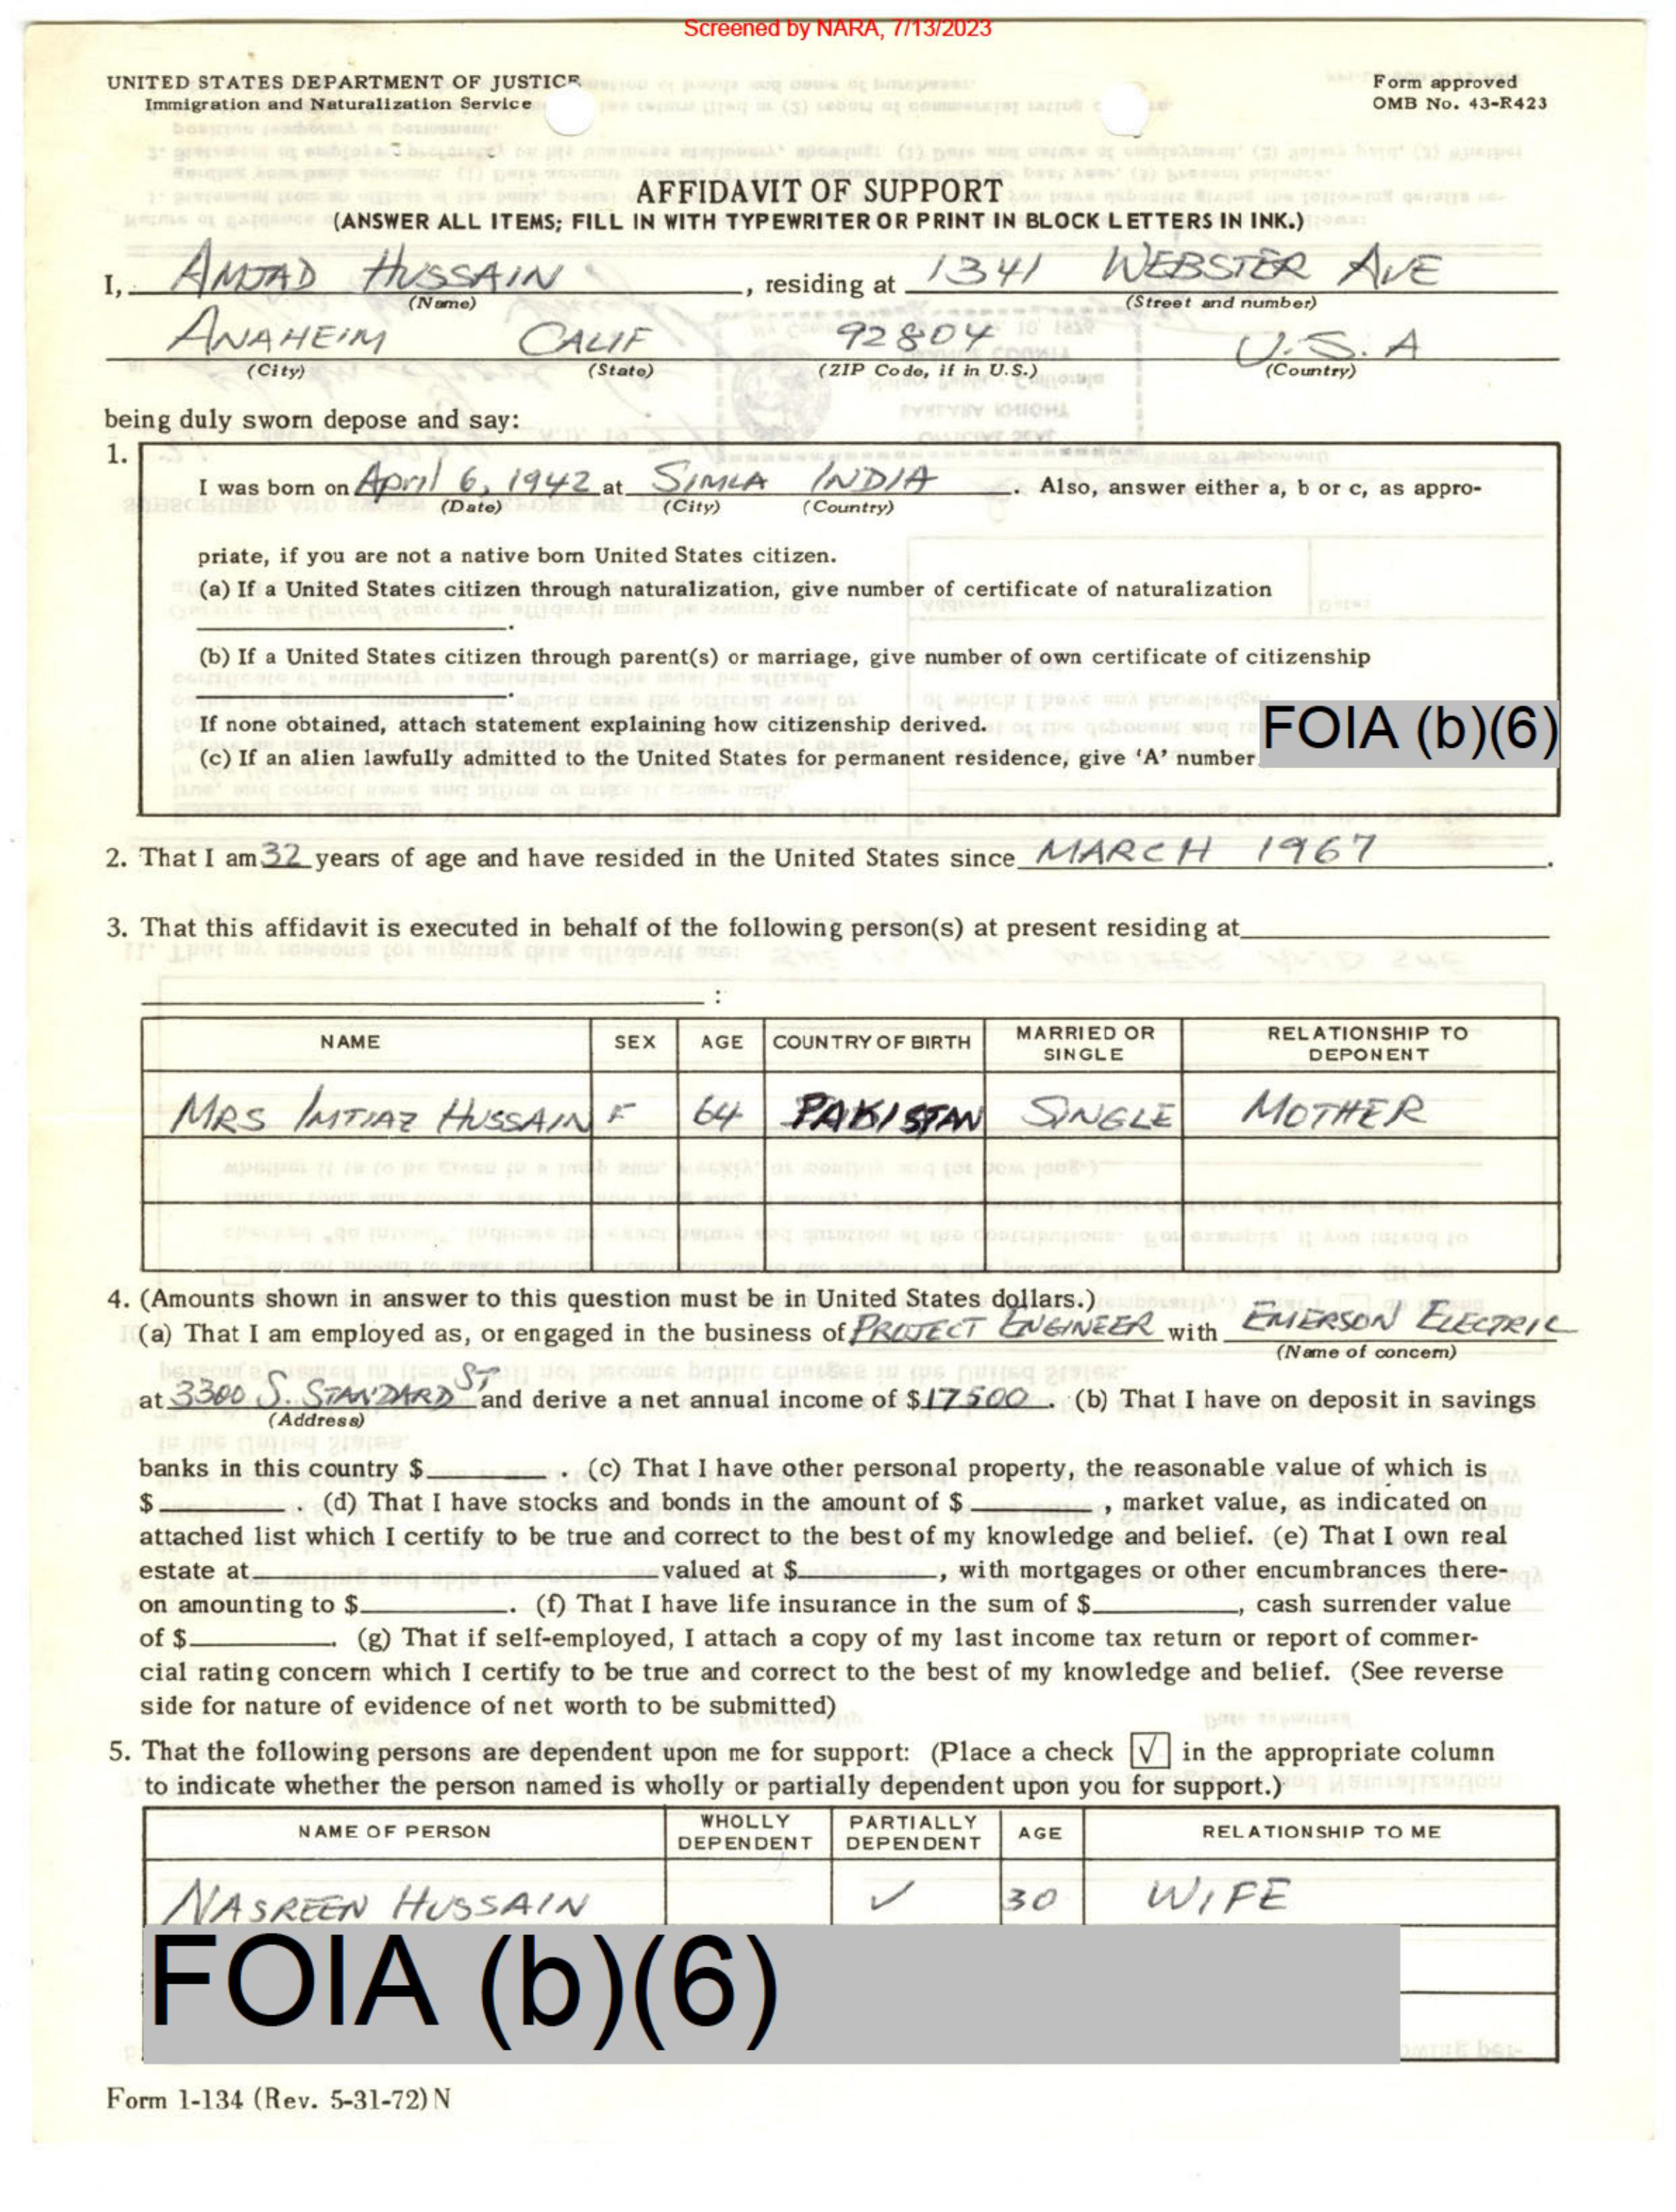 Screened by NARA, 7/13/2023
UNITED STATES DEPARTMENT OF JUSTICE
Immigration and Naturalization Service
Form approved
OMB No. 43-R423
AFFIDAVIT OF SUPPORT
(ANSWER ALL ITEMS; FILL IN WITH TYPEWRITER OR PRINT IN BLOCK LETTERS IN INK.)
I, AMJAD HUSSAIN, residing at 1341 WEBSTER AVE
(Name) (Street and number)
ANAHEIM CALIF 92804 U.S.A
(City) (State) (ZIP Code, if in U.S.) (Country)
being duly sworn depose and say:
1.
I was born on April 6, 1942 at SIMLA INDIA. Also, answer either a, b or c, as appro-
(Date) (City) (Country)
priate, if you are not a native born United States citizen.
(a) If a United States citizen through naturalization, give number of certificate of naturalization
.
(b) If a United States citizen through parent(s) or marriage, give number of own certificate of citizenship
.
If none obtained, attach statement explaining how citizenship derived.
FOIA (b)(6)
(c) If an alien lawfully admitted to the United States for permanent residence, give 'A' number
2. That I am 32 years of age and have resided in the United States since MARCH 1967.
3. That this affidavit is executed in behalf of the following person(s) at present residing at
:
NAME SEX AGE COUNTRY OF BIRTH MARRIED OR SINGLE RELATIONSHIP TO DEPONENT
MRS IMTIAZ HUSSAIN F 64 PAKISTAN SINGLE MOTHER
4. (Amounts shown in answer to this question must be in United States dollars.)
(a) That I am employed as, or engaged in the business of PROJECT ENGINEER with EMERSON ELECTRIC
(Name of concern)
at 3300 S. STANDARD ST and derive a net annual income of $17500. (b) That I have on deposit in savings
(Address)
banks in this country $ . (c) That I have other personal property, the reasonable value of which is
$ . (d) That I have stocks and bonds in the amount of $ , market value, as indicated on
attached list which I certify to be true and correct to the best of my knowledge and belief. (e) That I own real
estate at valued at $ , with mortgages or other encumbrances there-
on amounting to $ . (f) That I have life insurance in the sum of $ , cash surrender value
of $ . (g) That if self-employed, I attach a copy of my last income tax return or report of commer-
cial rating concern which I certify to be true and correct to the best of my knowledge and belief. (See reverse
side for nature of evidence of net worth to be submitted)
5. That the following persons are dependent upon me for support: (Place a check √ in the appropriate column
to indicate whether the person named is wholly or partially dependent upon you for support.)
NAME OF PERSON WHOLLY DEPENDENT PARTIALLY DEPENDENT AGE RELATIONSHIP TO ME
NASREEN HUSSAIN ✓ 30 WIFE
FOIA (b)(6)
Form I-134 (Rev. 5-31-72) N